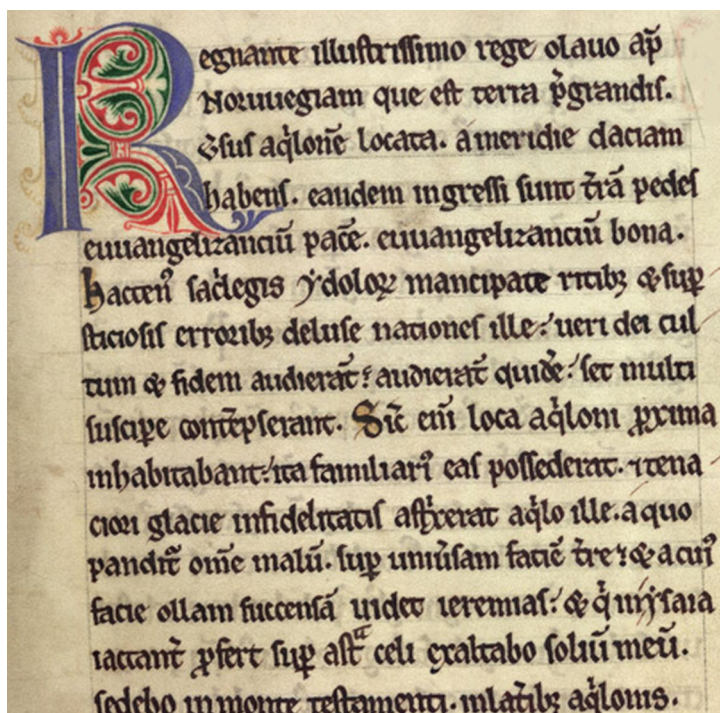 Regnante illustrissimo rege olauo ap̃
Noruuegiam que est terra p̾grandis.
ỽsus aq̾lonẽ locata. a meridie daciam
habens. eandem ingressi sunt t̾rã pedes
euuangelizanciũ pacẽ. euuangelizanciũ bona.
hacten᷒ sac̾legis ẏdoloꝝ mancipate ritibꝫ & suꝑ
sticiosis erroribꝫ deluse nationes ille:ʼ ueri dei cul
tum & fidem audierãt:ʼ audierãt quidẽ:ʼ set multi
suscipe contẽpserant. Sic̃ eni̅ loca aq̾loni ꝓxima
inhabitabant:ʼ ita familiari᷒ eas possederat. ⁊ tena
ciori glacie infidelitatis astͥxerat aq̾lo ille. a quo
pandit̃ om̅e malũ. suꝑ uniũsam faciẽ t̾re:ʼ & a cui᷒
facie ollam succensã uidet ieremias:ʼ & q̾ in ẏsaia
iactant̾ ꝓfert suꝑ astͣ celi exaltabo soliũ meũ.
sedebo in monte testamenti. in lat̾ibꝫ aq̾lonis.